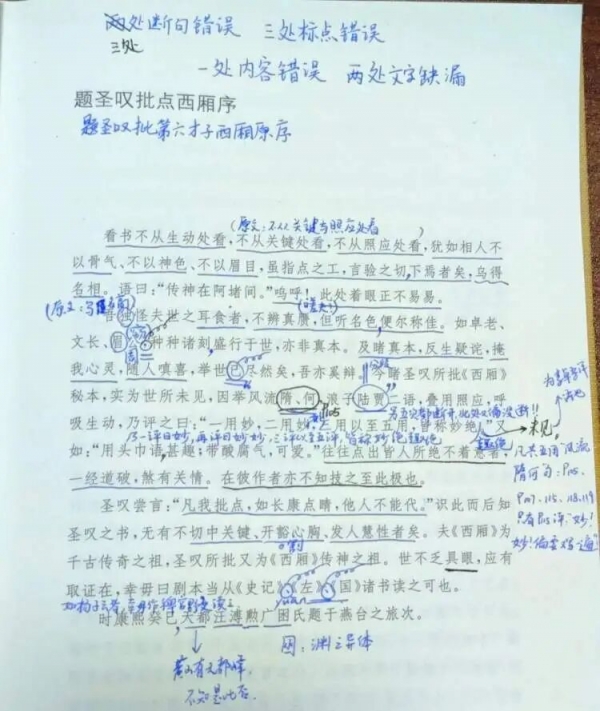 三处断句错误 三处标点错误
一处内容错误 两处文字缺漏
题圣叹批点西厢序
题圣叹批第六才子西厢原序
（原文：不从关键与照应处看）
看书不从生动处看，不从关键处看，不从照应处看，犹如相人不
以骨气、不以神色、不以眉目，虽指点之工，言验之切，下焉者矣，乌得
名相。语曰：“传神在阿堵间。”呜呼！此处着眼正不易易。
（嗟夫）
吾独怪夫世之耳食者，不辨真赝，但听名色便尔称佳。如卓老、
文长、眉公种种诸刻盛行于世，亦非真本。及睹真本，反生疑诧，掩
我心灵，随人嗔喜，举世已尽然矣，吾亦奚辩。今睹圣叹所批《西厢》
秘本，实为世所未见，因举风流隋、何，浪子陆贾二语，叠用照应，呼
吸生动，乃评之曰：“一用妙，二用妙，三用以至五用，皆称妙绝。”又
乃一评曰妙，再评曰妙妙，三评以至五评，皆称妙绝
如：“用头巾语甚趣；带酸腐气，可爱。”往往点出皆人所绝不着意者，
一经道破，煞有关情。在彼作者亦不知技之至此极也。
圣叹尝言：“凡我批点，如长康点睛，他人不能代。”识此而后知
圣叹之书，无有不切中关键、开豁心胸、发人慧性者矣。夫《西厢》为
千古传奇之祖，圣叹所批又为《西厢》传神之祖。世不乏具眼，应有
取证在，幸毋曰剧本当从《史记》《左》《国》诸书读之可也。
时康熙癸巳天都汪溥勳广困氏题于燕台之旅次。
困：渊之异体
黄山有天都峰
不知是此否